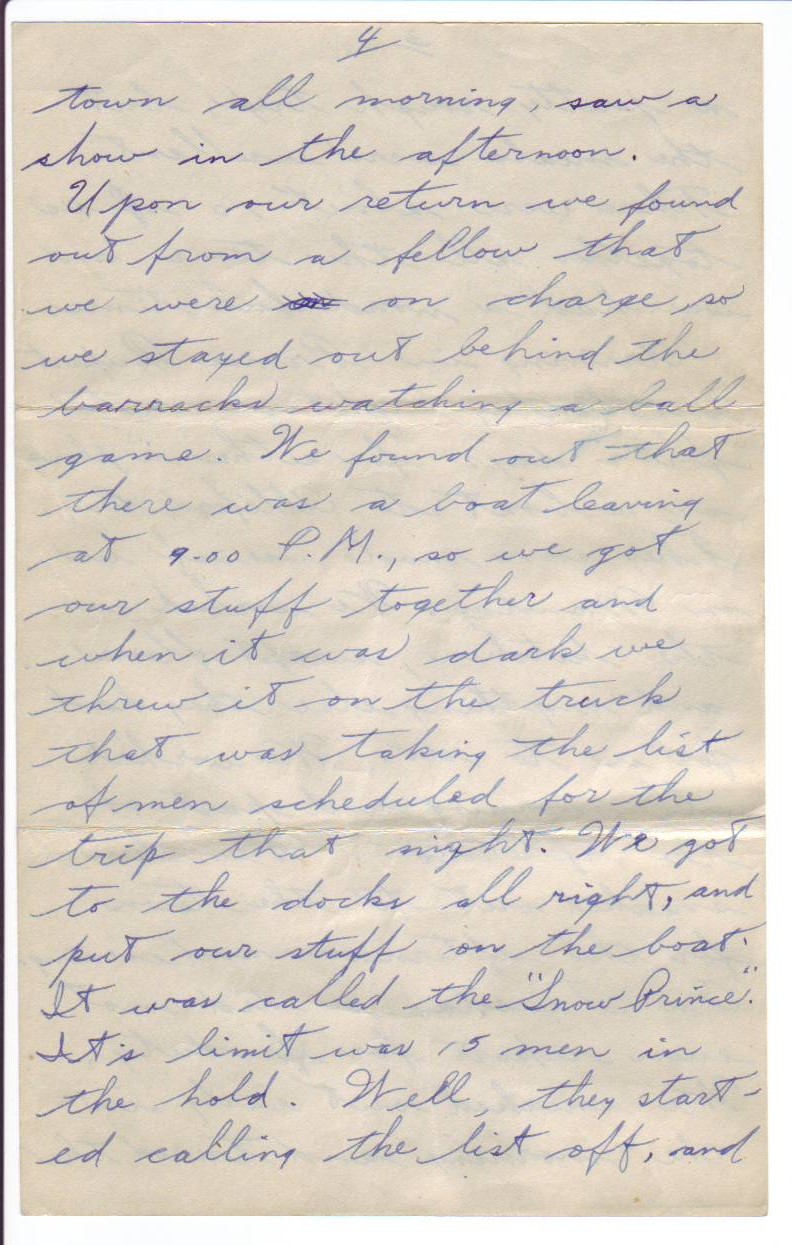 4
town all morning, saw a
show in the afternoon.
Upon our return we found
out from a fellow that
we were on charge, so
we stayed out behind the
barracks watching a ball
game. We found out that
there was a boat leaving
at 9.00 P.M., so we got
our stuff together and
when it was dark we
threw it on the truck
that was taking the list
of men scheduled for the
trip that night. We got
to the docks all right, and
put our stuff on the boat.
It was called the "Snow Prince".
It's limit was 15 men in
the hold. Well, they start-
ed calling the list off, and